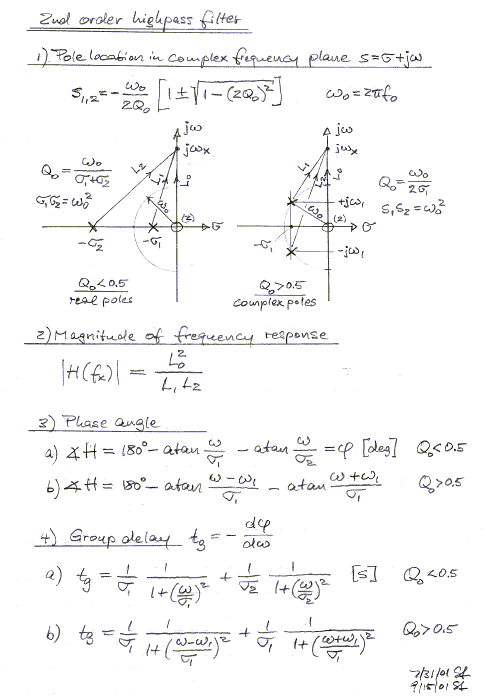 2nd order highpass filter
1) Pole location in complex frequency plane s=σ+jω
S₁,₂ = -ω₀/2Q₀ [1 ± √(1-(2Q₀)²)]  ω₀=2πf₀
jω  jω
jωx  jωx
Q₀ = ω₀/(σ₁+σ₂)  L₂  L₁  L₀  L₁  L₂  L₀  Q₀ = ω₀/2σ₁
σ₁σ₂=ω₀²  ω₀  ω₀  +jω₁  S₁S₂=ω₀²
(2)  σ  (2)  σ
-σ₂  -σ₁  -σ₁  -jω₁
Q₀<0.5  Q₀>0.5
real poles  complex poles
2) Magnitude of frequency response
|H(fx)| = L₀²/L₁L₂
3) Phase angle
a) ∡H = 180° - atan ω/σ₁ - atan ω/σ₂ = φ [deg]  Q₀<0.5
b) ∡H = 180° - atan (ω-ω₁)/σ₁ - atan (ω+ω₁)/σ₁  Q₀>0.5
4) Group delay tg = - dφ/dω
a) tg = 1/σ₁ 1/(1+(ω/σ₁)²) + 1/σ₂ 1/(1+(ω/σ₂)²)  [s]  Q₀<0.5
b) tg = 1/σ₁ 1/(1+((ω-ω₁)/σ₁)²) + 1/σ₁ 1/(1+((ω+ω₁)/σ₁)²)  Q₀>0.5
7/31/01
9/15/01